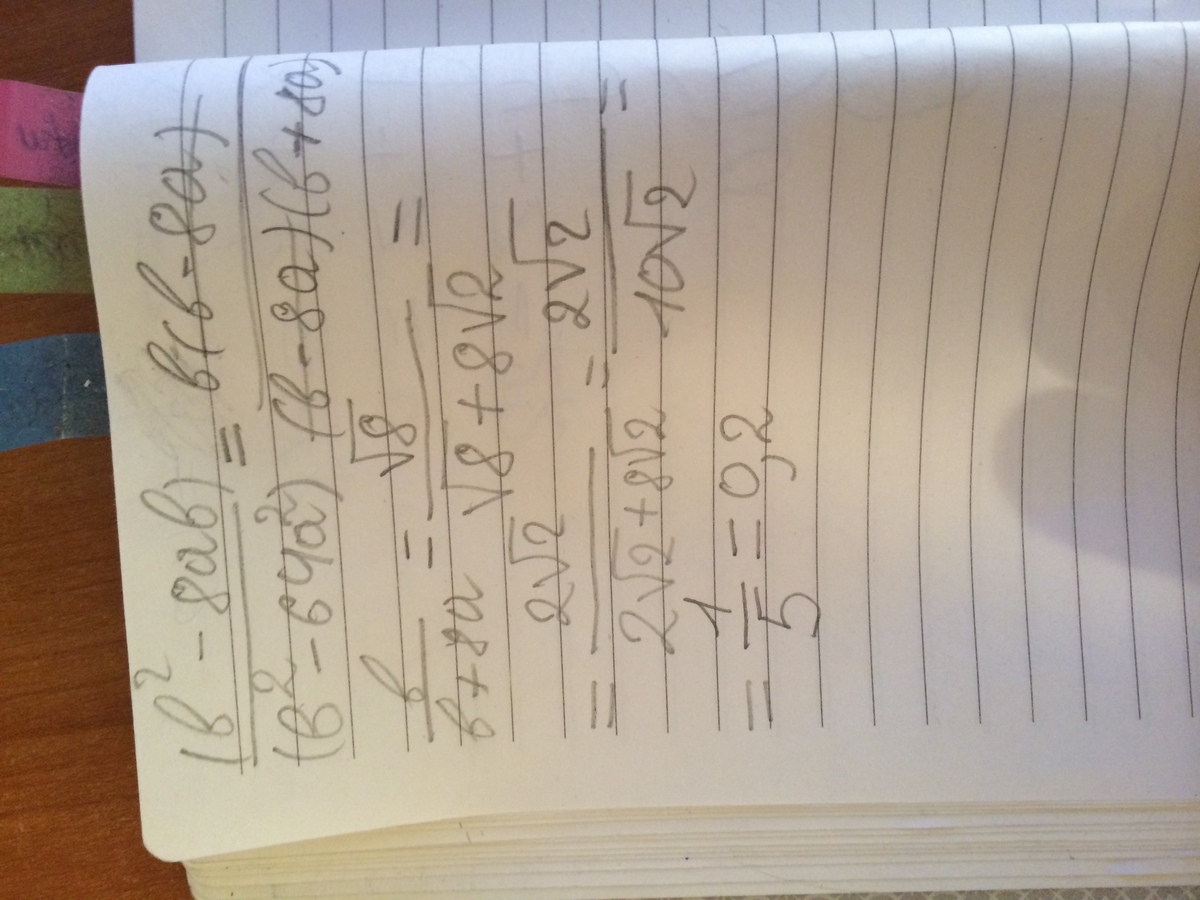 (b² - 8ab) / (b² - 64a²) = b(b - 8a) / (b - 8a)(b + 8a) =
b / b + 8a = √8 / √8 + 8√2 =
= 2√2 / 2√2 + 8√2 = 2√2 / 10√2 =
= 1 / 5 = 0,2